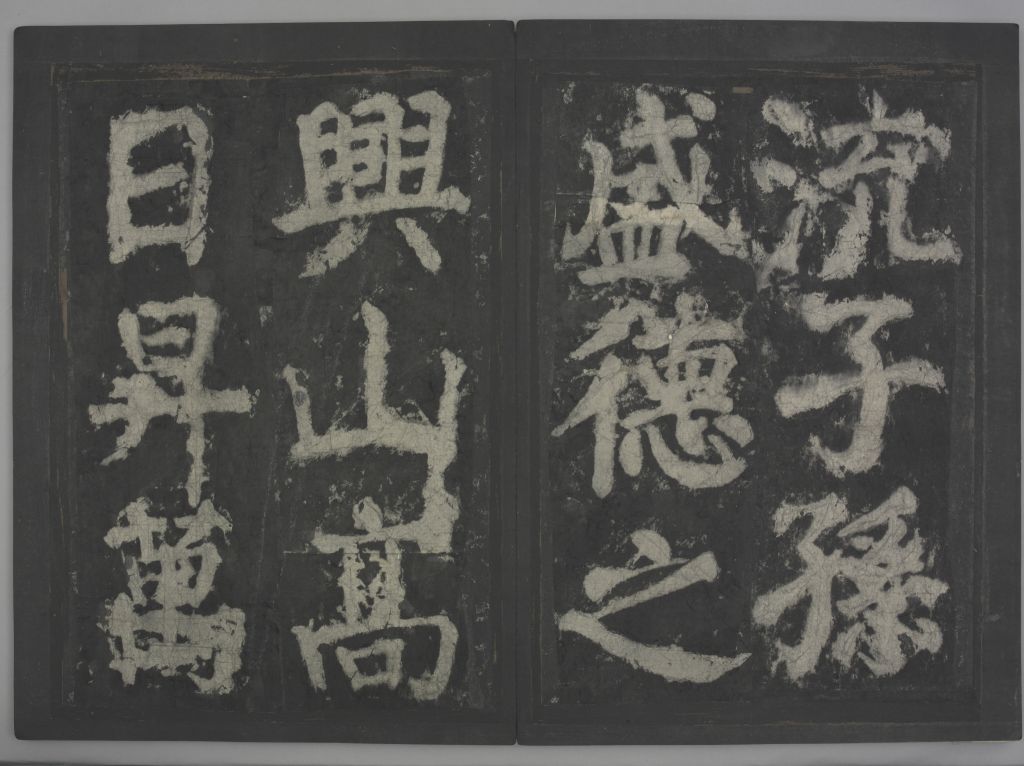 流子孫
盛德之
興山高
日昇萬